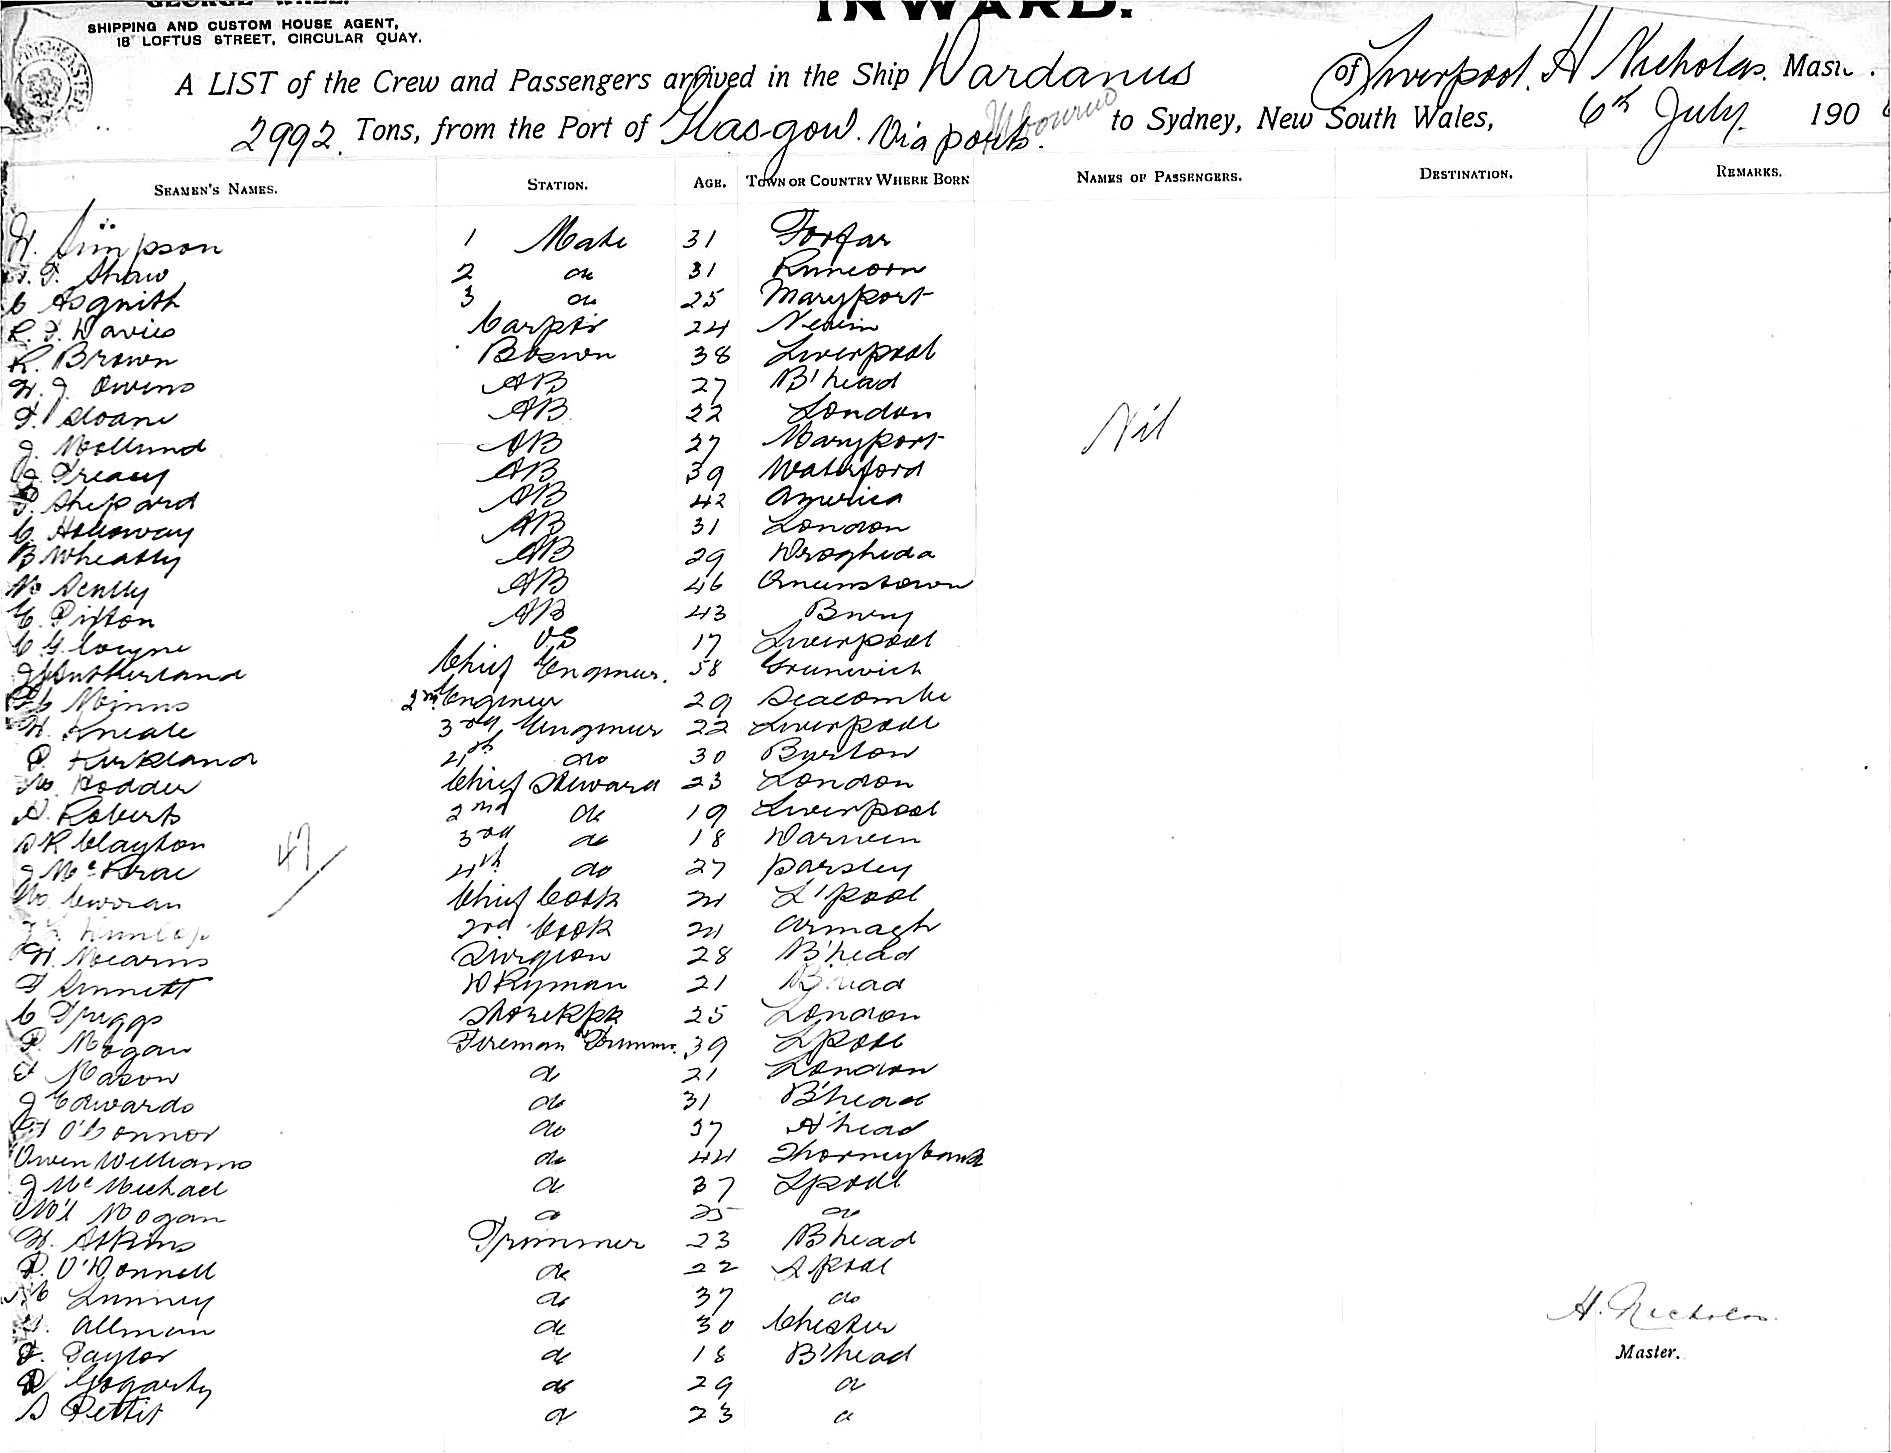 INWARD.
SHIPPING AND CUSTOM HOUSE AGENT,
18 LOFTUS STREET, CIRCULAR QUAY.
A LIST of the Crew and Passengers arrived in the Ship Dardanus of Liverpool. H Nicholas. Mast
2992 Tons, from the Port of Glasgow. Via ports. to Sydney, New South Wales, 6th July. 190
SEAMEN'S NAMES. STATION. AGE. TOWN OR COUNTRY WHERE BORN NAMES OF PASSENGERS. DESTINATION. REMARKS.
Simpson 1 Mate 31 Forfar
Shaw 2 do 31 Runcorn
C Asquith 3 do 25 Maryport
R. T. Davies Carptr 24 Nevin
R. Brown Boswn 38 Liverpool
W. J. Owens AB 27 B'head
Sloane AB 22 London
J. AB 27 Maryport
J. Treacy AB 39 Waterford
Shepard AB 42 America
C. Holloway AB 31 London
B Wheatly AB 29 Drogheda
Scully AB 46 Queenstown
E. Pixton AB 43 Bury
C G. Coryne OS 17 Liverpool
Sutherland Chief Engineer. 58 Greenwich
Minns 2nd Engineer 29 Seacombe
Kneale 3rd Engineer 22 Liverpool
Kirkland 4th do 30 Burton
Hodder Chief Steward 23 London
Roberts 2nd do 19 Liverpool
Clayton 3rd do 18 Darwen
J McKrae 4th do 27 parsley
Curran Chief Cook 24 L'pool
Dunlop 2nd Cook 24 Armagh
Mearns Surgeon 28 B'head
Sinnett DKyman 21 B'head
C Triggs Storekpr 25 London
Mogan Fireman Trimmr. 39 Lpool
Mason do 21 London
J Edwards do 31 B'head
O'Connor do 37 head
Owen Williams do 44 Thorneybank
J McMichael do 37 Lpool
Mogan do 25 do
Atkins Trimmer 23 Bhead
P. O'Donnell do 22 Lpool
Lunney do 37 do
Allman do 30 Chester
Taylor do 18 B'head
Gogarty do 29 do
S Pettit do 23 do
Nil
47
H. Nicholas
Master.